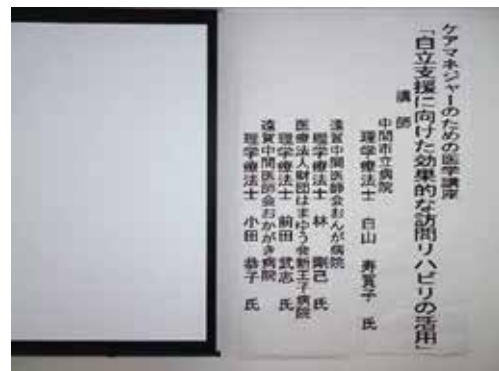 ケアマネジャーのための医学講座
「自立支援に向けた効果的な訪問リハビリの活用」
講師
中間市立病院
理学療法士 白山 寿賀子 氏
遠賀中間医師会おんが病院
理学療法士 林 剛己 氏
医療法人財団はまゆう会新王子病院
理学療法士 前田 武志 氏
遠賀中間医師会おかがき病院
理学療法士 小田 恭子 氏